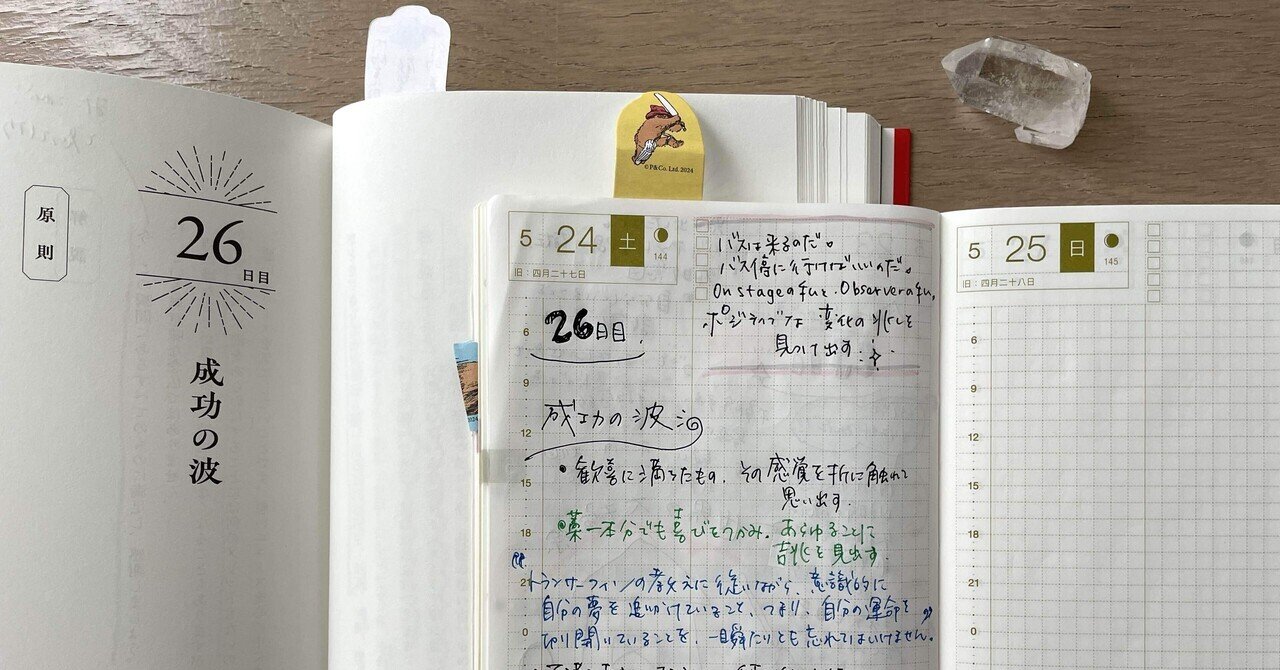 原則
26
日目
成功の波
©P&Co. Ltd. 2024
5 24 土
144
旧：四月二十七日
バスは来るのだ。
バス停に行けばいいのだ。
On stageの私と、Observerの私。
ポジティブな 変化の兆しを
見つけ出す
6
26日目.
9
成功の波
12
・歓喜に満ちたもの、その感覚を折に触れて
思い出す.
15
・藁一本分でも喜びをつかみ、あらゆることに
吉兆を見出す.
18
トランサーフィンの教えに従いながら、意識的に
21
自分の夢を追いかけていること、つまり、自分の運命を
切り開いていることを、一瞬たりとも忘れてはいけません。
0
5 25 日
145
旧：四月二十八日
6
9
12
15
18
21
0
2024